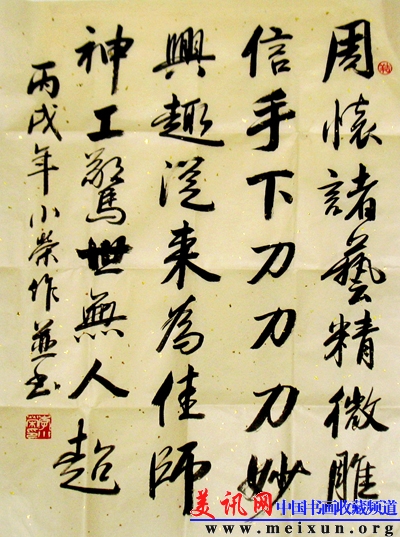 周懷諸藝精微雕
信手下刀刀刀妙
興趣從来為佳師
神工驚世無人超
丙戌年小榮作並書
美讯网
中国书画收藏频道
www.meixun.org